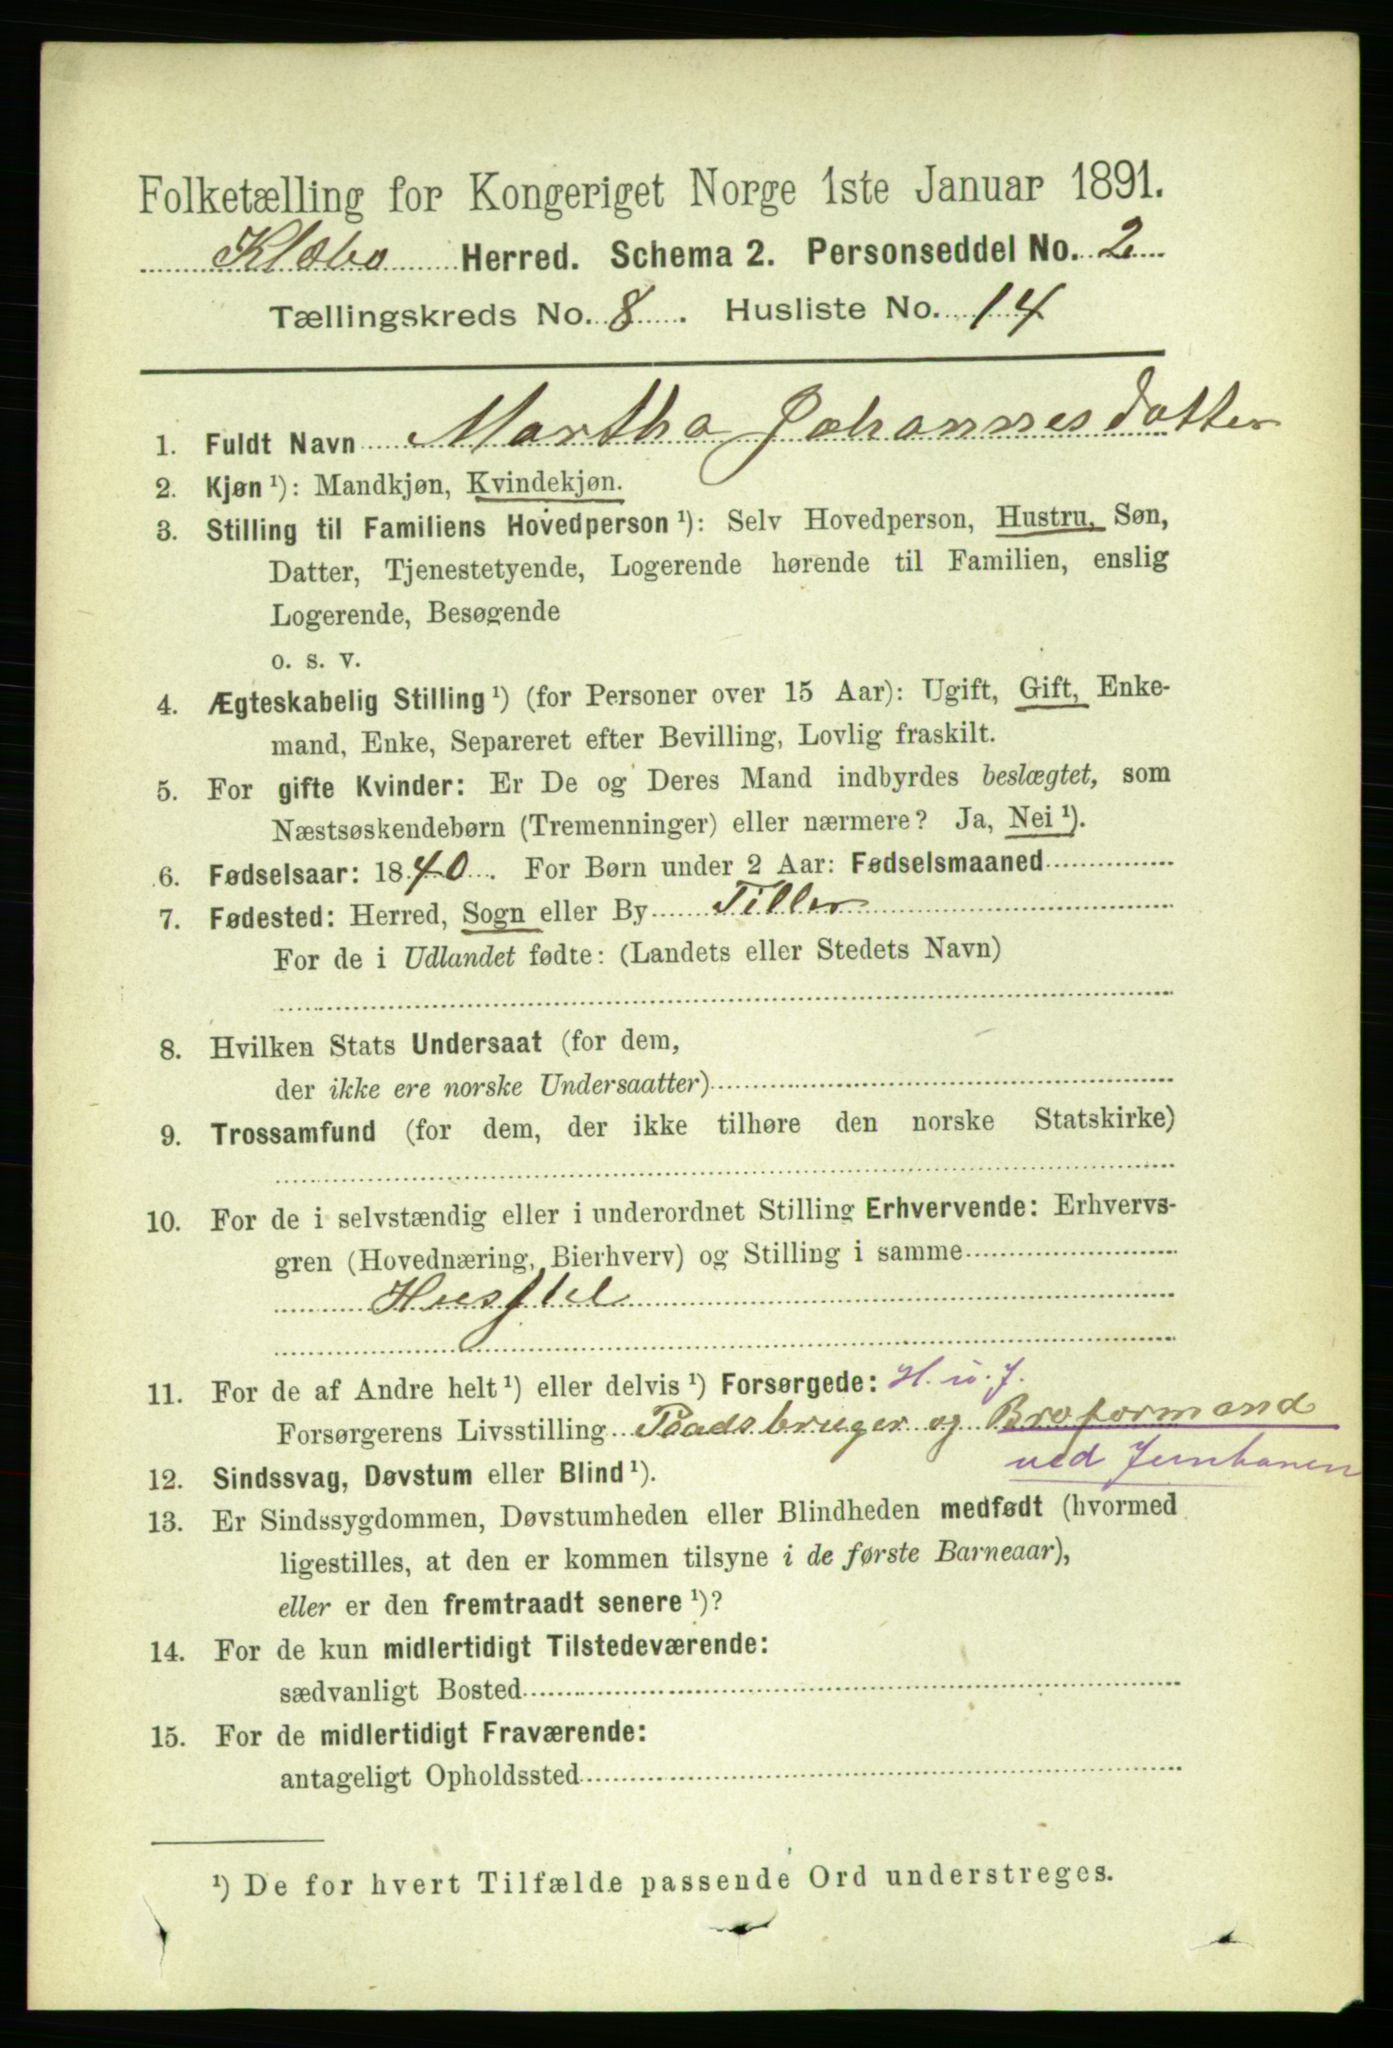 Folketælling for Kongeriget Norge 1ste Januar 1891.
Klæbo Herred. Schema 2. Personseddel No. 2
Tællingskreds No. 8. Husliste No. 14
1. Fuldt Navn Martha Johannesdatter
2. Kjøn ¹): Mandkjøn, Kvindekjøn.
3. Stilling til Familiens Hovedperson ¹): Selv Hovedperson, Hustru, Søn,
Datter, Tjenestetyende, Logerende hørende til Familien, enslig
Logerende, Besøgende
o. s. v.
4. Ægteskabelig Stilling ¹) (for Personer over 15 Aar): Ugift, Gift, Enke-
mand, Enke, Separeret efter Bevilling, Lovlig fraskilt.
5. For gifte Kvinder: Er De og Deres Mand indbyrdes beslægtet, som
Næstsøskendebørn (Tremenninger) eller nærmere? Ja, Nei ¹).
6. Fødselsaar: 1840. For Børn under 2 Aar: Fødselsmaaned
7. Fødested: Herred, Sogn eller By Tiller
For de i Udlandet fødte: (Landets eller Stedets Navn)
8. Hvilken Stats Undersaat (for dem,
der ikke ere norske Undersaatter)
9. Trossamfund (for dem, der ikke tilhøre den norske Statskirke)
10. For de i selvstændig eller i underordnet Stilling Erhvervende: Erhvervs-
gren (Hovednæring, Bierhverv) og Stilling i samme
Husstel
11. For de af Andre helt ¹) eller delvis ¹) Forsørgede: H. u. f.
Forsørgerens Livsstilling Pladsbruger og Broformand
ved Jernbanen
12. Sindssvag, Døvstum eller Blind ¹).
13. Er Sindssygdommen, Døvstumheden eller Blindheden medfødt (hvormed
ligestilles, at den er kommen tilsyne i de første Barneaar),
eller er den fremtraadt senere ¹)?
14. For de kun midlertidigt Tilstedeværende:
sædvanligt Bosted
15. For de midlertidigt Fraværende:
antageligt Opholdssted
¹) De for hvert Tilfælde passende Ord understreges.